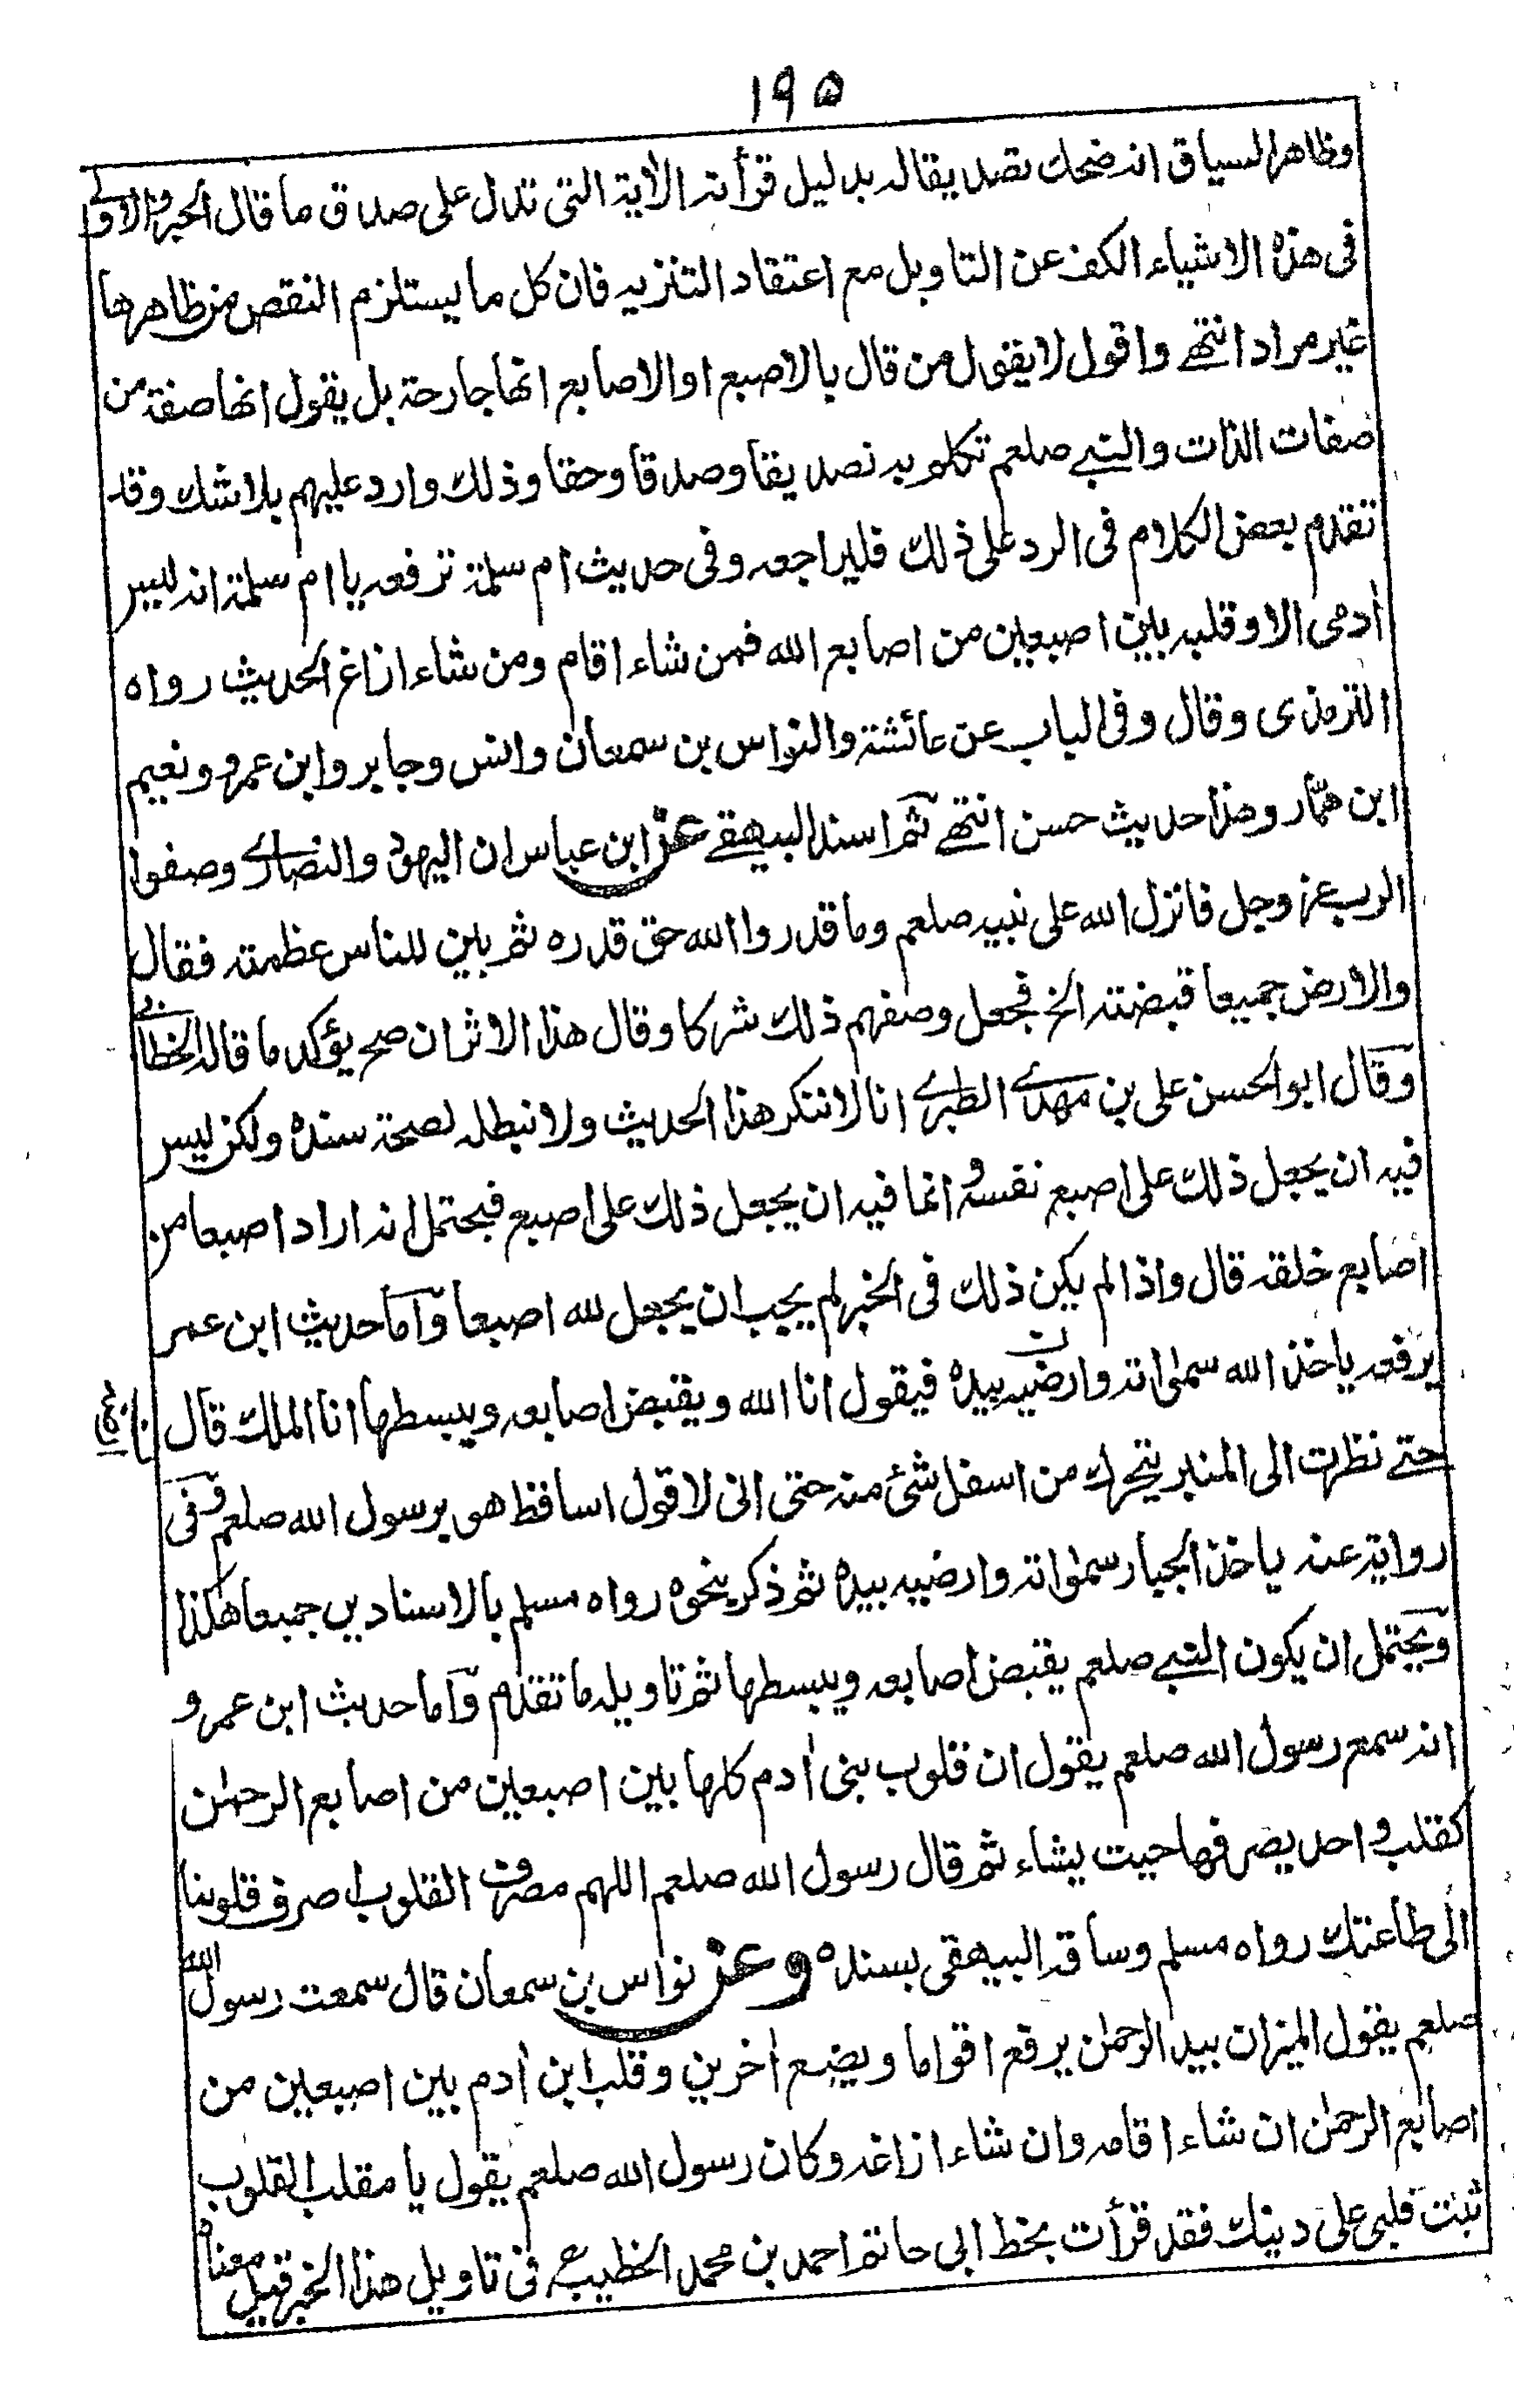 ١٩٥
وظاهر السياق انه ضحك تصديقا له بدليل قرأته الأية التى تدل على صدق ما قال الحبر والاولى
فى هذه الاشياء الكف عن التاويل مع اعتقاد التنزيه فان كل ما يستلزم النقص من ظاهرها
غير مراد انتهے واقول لا يقول من قال بالاصبع او الاصابع انها جارحة بل يقول انها صفة من
صفات الذات والنبے صلعم تكلم به تصديقا وصدقا وحقا وذلك وارد عليهم بلا شك وقد
تقدم بعض الكلام فى الرد على ذلك فليراجعه وفى حديث ام سلمة ترفعه يا ام سلمة انه ليس
أدمى الا وقلبه بين اصبعين من اصابع الله فمن شاء اقام ومن شاء ازاغ الحديث رواه
الترمذى وقال وفى الباب عن عائشة والنواس بن سمعان وانس وجابر وابن عمرو ونعيم
ابن همّار وهذا حديث حسن انتهے ثم اسند البيهقے عن ابن عباس ان اليهود والنصارے وصفوا
الرب عز وجل فانزل الله على نبيه صلعم وما قدروا الله حق قدره ثم بين للناس عظمته فقال
والارض جميعا قبضته الخ فجعل وصفهم ذلك شركا وقال هذا الاثر ان صح يؤكد ما قاله الخطابى
وقال ابو الحسن على بن مهدے الطبرے انا لا ننكر هذا الحديث ولا نبطله لصحة سنده ولكن ليس
فيه ان يجعل ذلك على اصبع نفسه وانما فيه ان يجعل ذلك على اصبع فيحتمل انه اراد اصبعا من
اصابع خلقه قال واذا لم يكن ذلك فى الخبر لم يجب ان يجعل لله اصبعا واما حديث ابن عمر
يرفعه ياخذ الله سمٰواته وارضيه بيده فيقول انا الله ويقبض اصابعه ويبسطها انا الملك قال
حتے نظرت الى المنبر يتحرك من اسفل شئ منه حتى انى لاقول اساقط هو برسول الله صلعم وفى
رواية عنه ياخذ الجبار سمٰواته وارضيه بيده ثم ذكر نحوه رواه مسلم بالاسنادين جميعا هكذا
ويحتمل ان يكون النبے صلعم يقبض اصابعه ويبسطها ثم تاويله ما تقدم واما حديث ابن عمرو
انه سمع رسول الله صلعم يقول ان قلوب بنى أدم كلها بين اصبعين من اصابع الرحمٰن
كقلب واحد يصرفها حيت يشاء ثم قال رسول الله صلعم اللهم مصرف القلوب اصرف قلوبنا
الى طاعتك رواه مسلم وساقه البيهقى بسنده وعن نواس بن سمعان قال سمعت رسول الله
صلعم يقول الميزان بيد الرحمٰن يرفع اقواما ويضع أخرين وقلب ابن أدم بين اصبعين من
اصابع الرحمٰن ان شاء اقامه وان شاء ازاغه وكان رسول الله صلعم يقول يا مقلب القلوب
ثبت قلبى على دينك فقد قرأت بخط ابى حاتم احمد بن محمد الخطيب فى تاويل هذا الخبر قيل معناه